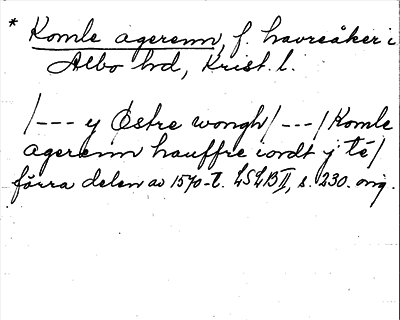 * Komle agerenn, f. havreåker i
Albo hd, Krist. l.
/--- y Østre wongh/ ---/Komle
agerenn hauffre iordt j té/
förra delen av 1570-t. LSLB II, s. 230. orig.